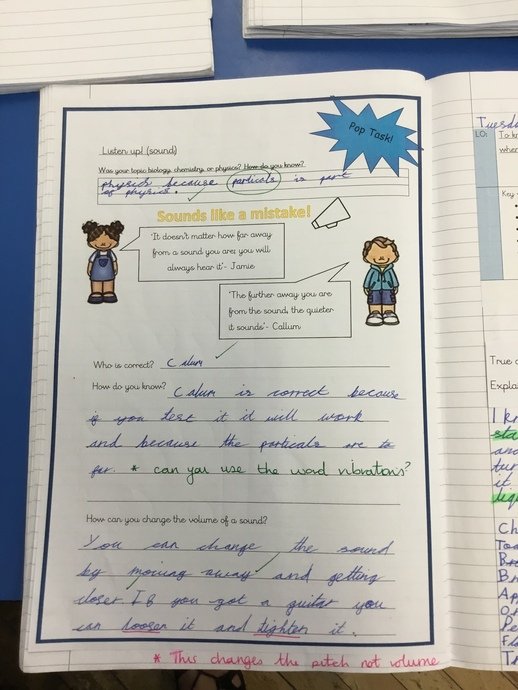 Pop Task!
Listen up! (sound)
Was your topic biology, chemistry, or physics? How do you know?
physics because particals is part
of physics.
Sounds like a mistake!
'It doesn't matter how far away
from a sound you are; you will
always hear it'- Jamie
'The further away you are
from the sound, the quieter
it sounds'- Callum
Who is correct? Calum
How do you know? Calum is correct because
if you test it it will work
and because the particals are to
far. * can you use the word vibrations?
How can you change the volume of a sound?
You can change the sound
by moving away and getting
closer. If you got a guitar you
can loosen it and tighten it.
* This changes the pitch not volume
Tuesda
LO:
To k
when
Key
True o
Explai
I k
sta
and
tur
it
liqu
Ch
Too
B
Ap